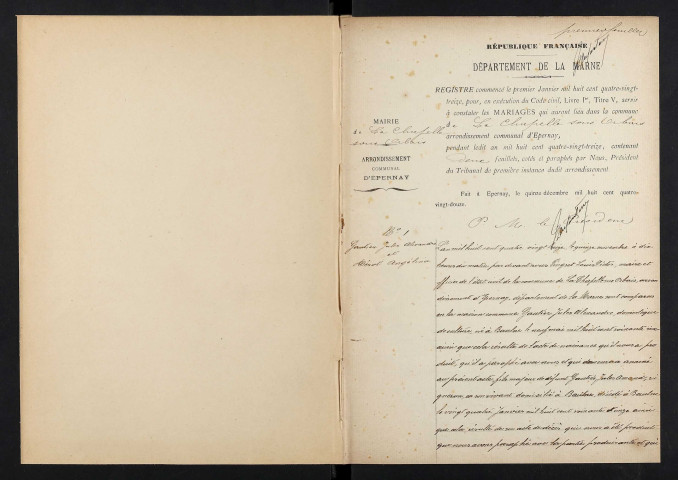 premier feuillet
RÉPUBLIQUE FRANÇAISE
DÉPARTEMENT DE LA MARNE
REGISTRE commencé le premier Janvier mil huit cent quatre-vingt-
treize, pour, en exécution du Code civil, Livre Ier, Titre V, servir
à constater les MARIAGES qui auront lieu dans la commune
de La Chapelle sous Orbais
arrondissement communal d'Epernay,
pendant ledit an mil huit cent quatre-vingt-treize, contenant
deux feuillets, cotés et paraphés par Nous, Président
du Tribunal de première instance dudit arrondissement.
Fait à Epernay, le quinze décembre mil huit cent quatre-
vingt-douze.
MAIRIE
de La Chapelle
sous Orbais
ARRONDISSEMENT
COMMUNAL
D'ÉPERNAY
P. Mr le
No 1
Gautier Jules Alexandre
et
Angélina
L'an mil huit cent quatre vingt treize le quinze novembre à dix
heures du matin, par devant nous Louis Victor, maire et
officier de l'état civil de la commune de La Chapelle sous Orbais, arron
dissement d'Epernay, département de la Marne sont comparus
en la maison commune Gautier Jules Alexandre, domestique
de culture, né à le neuf mai mil huit cent soixante
ainsi que cela résulte de l'acte de naissance qu'il nous a pro
duit, qu'il a paraphé avec nous et qui demeurera annexé
au présent acte, fils majeur de défunt Gautier Jules
en son vivant domicilié à décédé à
le vingt quatre Janvier mil huit cent soixante onze ainsi
que cela résulte de son acte de décès qui nous a été produit
que nous avons paraphé avec les parties produisantes et qui